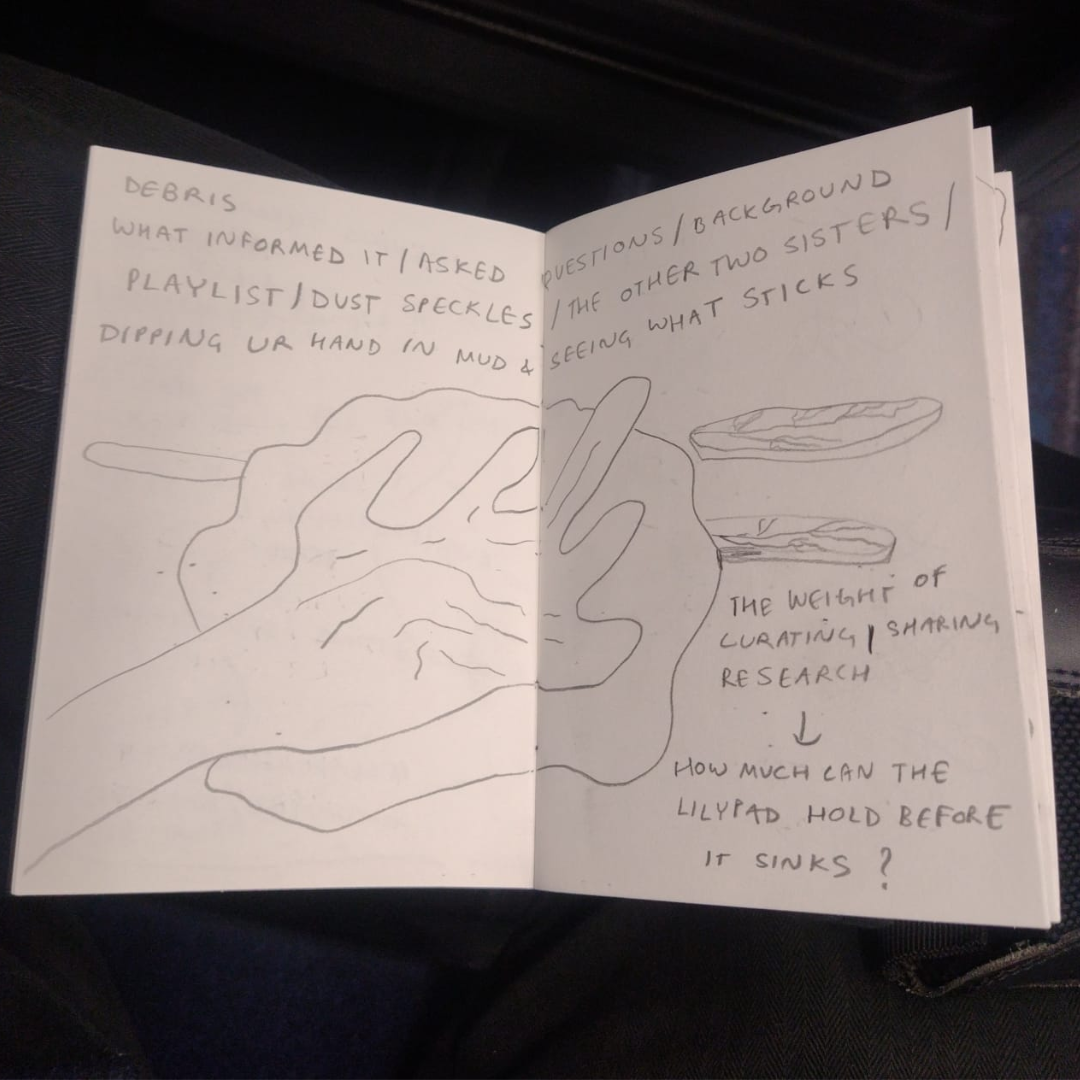 DEBRIS
WHAT INFORMED IT / ASKED QUESTIONS / BACKGROUND
PLAYLIST / DUST SPECKLES / THE OTHER TWO SISTERS /
DIPPING UR HAND IN MUD & SEEING WHAT STICKS
THE WEIGHT OF
CURATING / SHARING
RESEARCH
↓
HOW MUCH CAN THE
LILYPAD HOLD BEFORE
IT SINKS ?